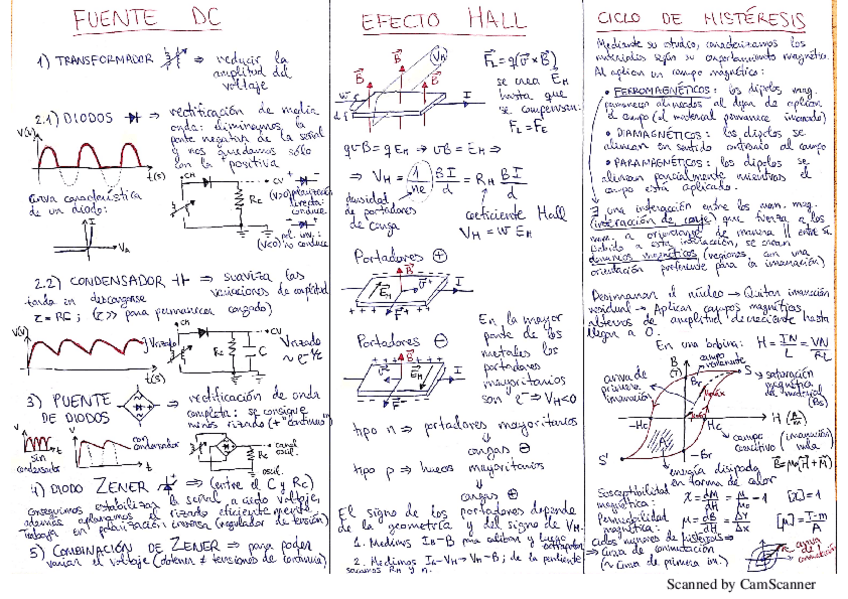 FUENTE DC
1) TRANSFORMADOR ⇒ reducir la
amplitud del
voltaje
2.1) DIODOS ⇒ rectificación de media
onda: eliminamos la
parte negativa de la señal
y nos quedamos sólo
con la positiva
V(V)
t(s)
Curva característica
de un diodo:
I
V_A
CH
R_C
CV
(V>0) polarización
directa:
conduce
pol. inv.:
(V<0) no conduce
2.2) CONDENSADOR ⇒ suaviza las
variaciones de amplitud
tarda en descargarse
τ = RC; (τ >> para permanecer cargado)
V(V)
Vrizado
t(s)
CH
R_C
C
CV
Vrizado
3) PUENTE
DE DIODOS
⇒ rectificación de onda
completa: se consigue
menos rizado (+ "continuo")
V
t
sin
condensador
V
con
condensador
t
R_C
canal
oscil.
oscil.
4) DIODO ZENER ⇒ (entre el C y R_C)
conseguimos estabilizar la señal a cierto voltaje,
además aplanamos el rizado eficientemente.
Trabaja en polarización inversa (regulador de tensión)
5) COMBINACIÓN DE ZENER ⇒ para poder
variar el voltaje (obtener ≠ tensiones de continua)
EFECTO HALL
B
B
B
V_H
w
d
I
F_L = q(v × B)
se crea E_H
hasta que
se compensan:
F_L = F_E
qvB = qE_H → vB = E_H ⇒
⇒ V_H = 1/ne BI/d = R_H BI/d
densidad
de portadores
de carga
coeficiente Hall
V_H = w E_H
Portadores ⊕
B
E_H
v
I
Portadores ⊖
+ + + +
B
v
F
I
En la mayor
parte de los
metales los
portadores
mayoritarios
son e⁻ ⇒ V_H<0
tipo n ⇒ portadores mayoritarios
cargas ⊖
tipo p ⇒ huecos mayoritarios
cargas ⊕
El signo de los portadores depende
de la geometría y del signo de V_H.
1. Medimos I_B-B para calibrar y luego extrapolar
2. Medimos I_H-V_H → V_H-B; de la pendiente
sacamos R_H y n.
CICLO DE HISTÉRESIS
Mediante su estudio, caracterizamos los
materiales según su comportamiento magnético.
Al aplicar un campo magnético:
• FERROMAGNÉTICOS: los dipolos mag.
permanecen alineados al dejar de aplicar
el campo (el material permanece imanado)
• DIAMAGNÉTICOS: los dipolos se
alinean en sentido contrario al campo
• PARAMAGNÉTICOS: los dipolos se
alinean parcialmente mientras el
campo está aplicado.
∃ una interacción entre los mom. mag.
(interacción de canje) que fuerza a los
mom. a orientarse de manera || entre sí.
Debido a esta interacción, se crean
dominios magnéticos (regiones con una
orientación preferente para la imanación)
Desimanar el núcleo → Quitar imanación
residual → Aplicar campos magnéticos
alternos de amplitud decreciente hasta
llegar a 0.
En una bobina: H = IN/L = VN/RL
B
(T)
campo
remanente
S
curva de
primera
imanación
Br
μmáx
saturación
magnética
del material
(Bs)
-Hc
Hc
H (A/m)
A
campo
coercitivo
(imanación
nula)
-Br
S'
energía disipada
en forma de calor
B = μ₀(H + M)
Susceptibilidad
magnética:
χ = dM/dH = μ/μ₀ - 1 [χ] = 1
Permeabilidad
magnética:
μ = dB/dH = ΔT/Δx [μ] = T·m/A
Ciclos menores de histéresis ⇒
⇒ Curva de conmutación
(~ Curva de primera im.)
curva de
conmutación
Scanned by CamScanner